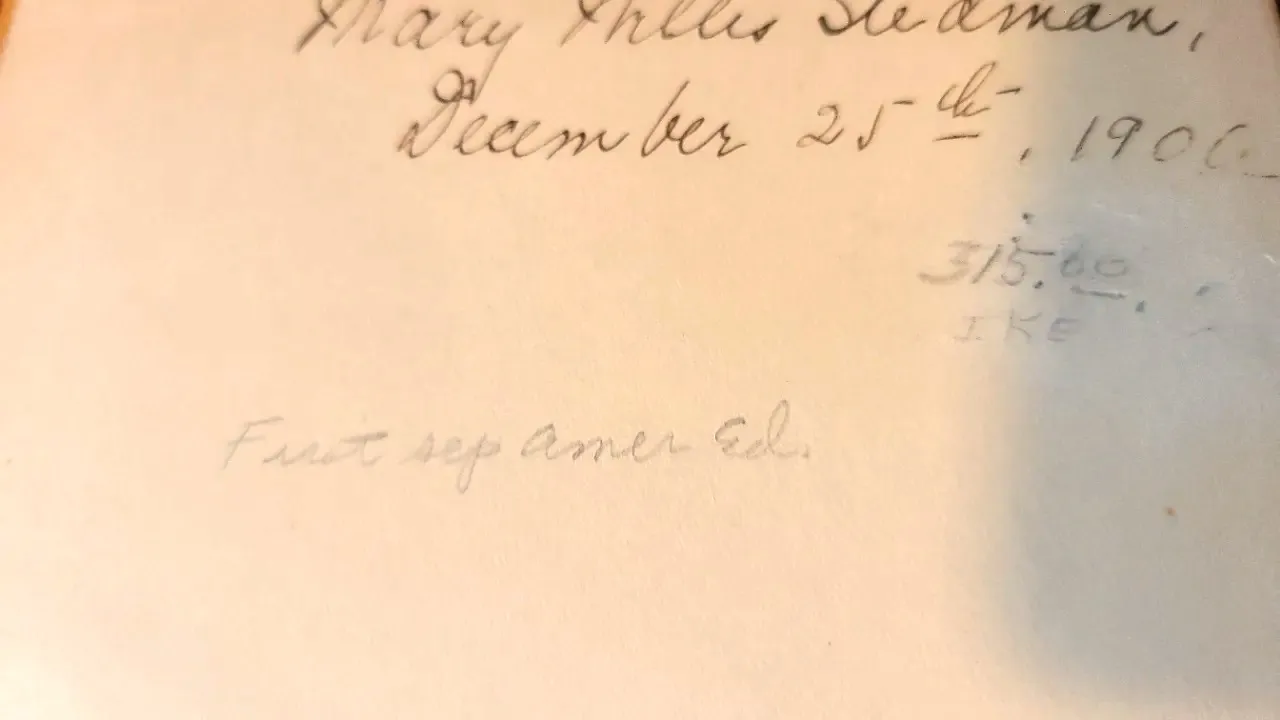 Mary Stedman,
December 25th, 1906
315.00
IKE
First sep Amer Ed.